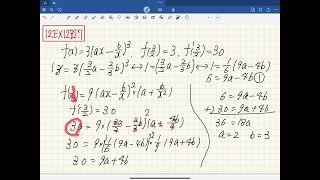 12EX12327
f(x)=3(ax-b/x)³, f(3/2)=3, f'(3/2)=30
(3=3(3/2a-2/3b)³ ↔ 1=(3/2a-2/3b)³ ↔ 1=1/6(9a-4b)
6=9a-4b ①
f'(x)=9(ax-b/x)²(a+b/x²)
f'(3/2)=30
30=9·(3a/2-2/3b)²(a+4b/9)
30=9·1/6(9a-4b)²·1/9(9a+4b)
30=9a+4b
6=9a-4b
+) 30=9a+4b
36=18a
a=2 b=3